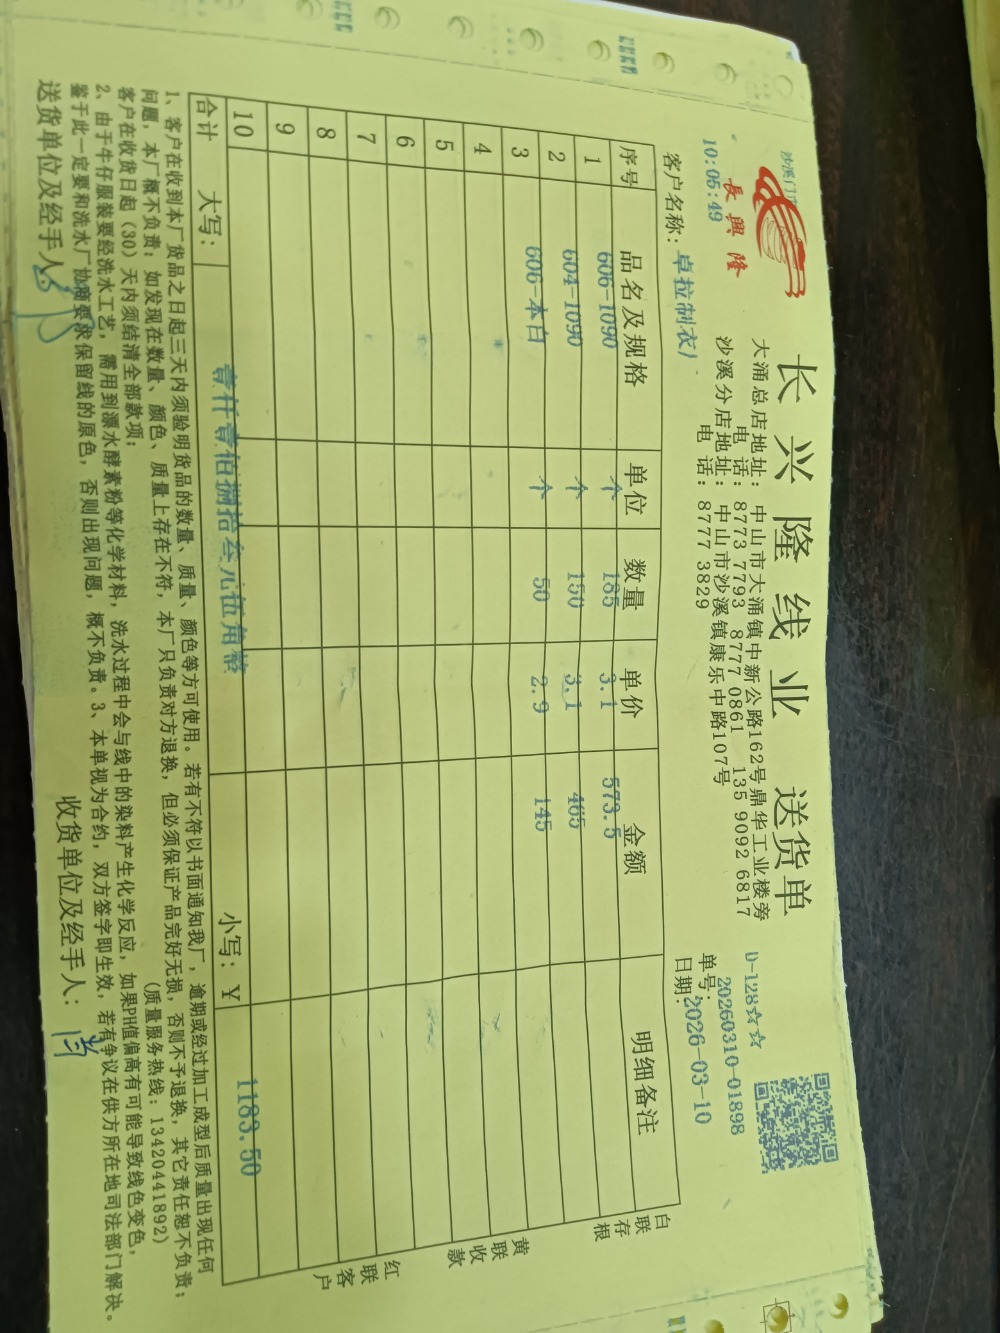 沙溪门市
10:05:49
長興隆
长兴隆线业 送货单
大涌总店地址:中山市大涌镇中新公路162号鼎华工业楼旁
电 话:8773 7793 8777 0861 135 9092 6817
沙溪分店地址:中山市沙溪镇康乐中路107号
电 话:8777 3829
D-128☆☆
单号:20260310-01898
日期:2026-03-10
客户名称:卓拉制衣厂
序号 品名及规格 单位 数量 单价 金额 明细备注
1 606-1090 个 185 3.1 573.5
2 604-1090 个 150 3.1 465
3 606-本白 个 50 2.9 145
4
5
6
7
8
9
10
合计 大写: 壹仟壹佰捌拾叁元伍角整 小写:¥ 1183.50
白联存根
黄联收款
红联客户
1、客户在收到本厂货品之日起三天内须验明货品的数量、质量、颜色等方可使用。若有不符以书面通知我厂,逾期或经过加工成型后质量出现任何
问题,本厂概不负责;如发现在数量、颜色、质量上存在不符,本厂只负责对方退换,但必须保证产品完好无损,否则不予退换,其它责任恕不负责;
客户在收货日起(30)天内须结清全部款项; (质量服务热线:13420441892)
2、由于牛仔服装要经洗水工艺,需用到漂水酵素粉等化学材料,洗水过程中会与线中的染料产生化学反应,如果PH值偏高有可能导致线色变色,
鉴于此一定要和洗水厂协商要求保留线的原色,否则出现问题,概不负责。3、本单视为合约,双方签字即生效,若有争议在供方所在地司法部门解决。
送货单位及经手人: 收货单位及经手人: